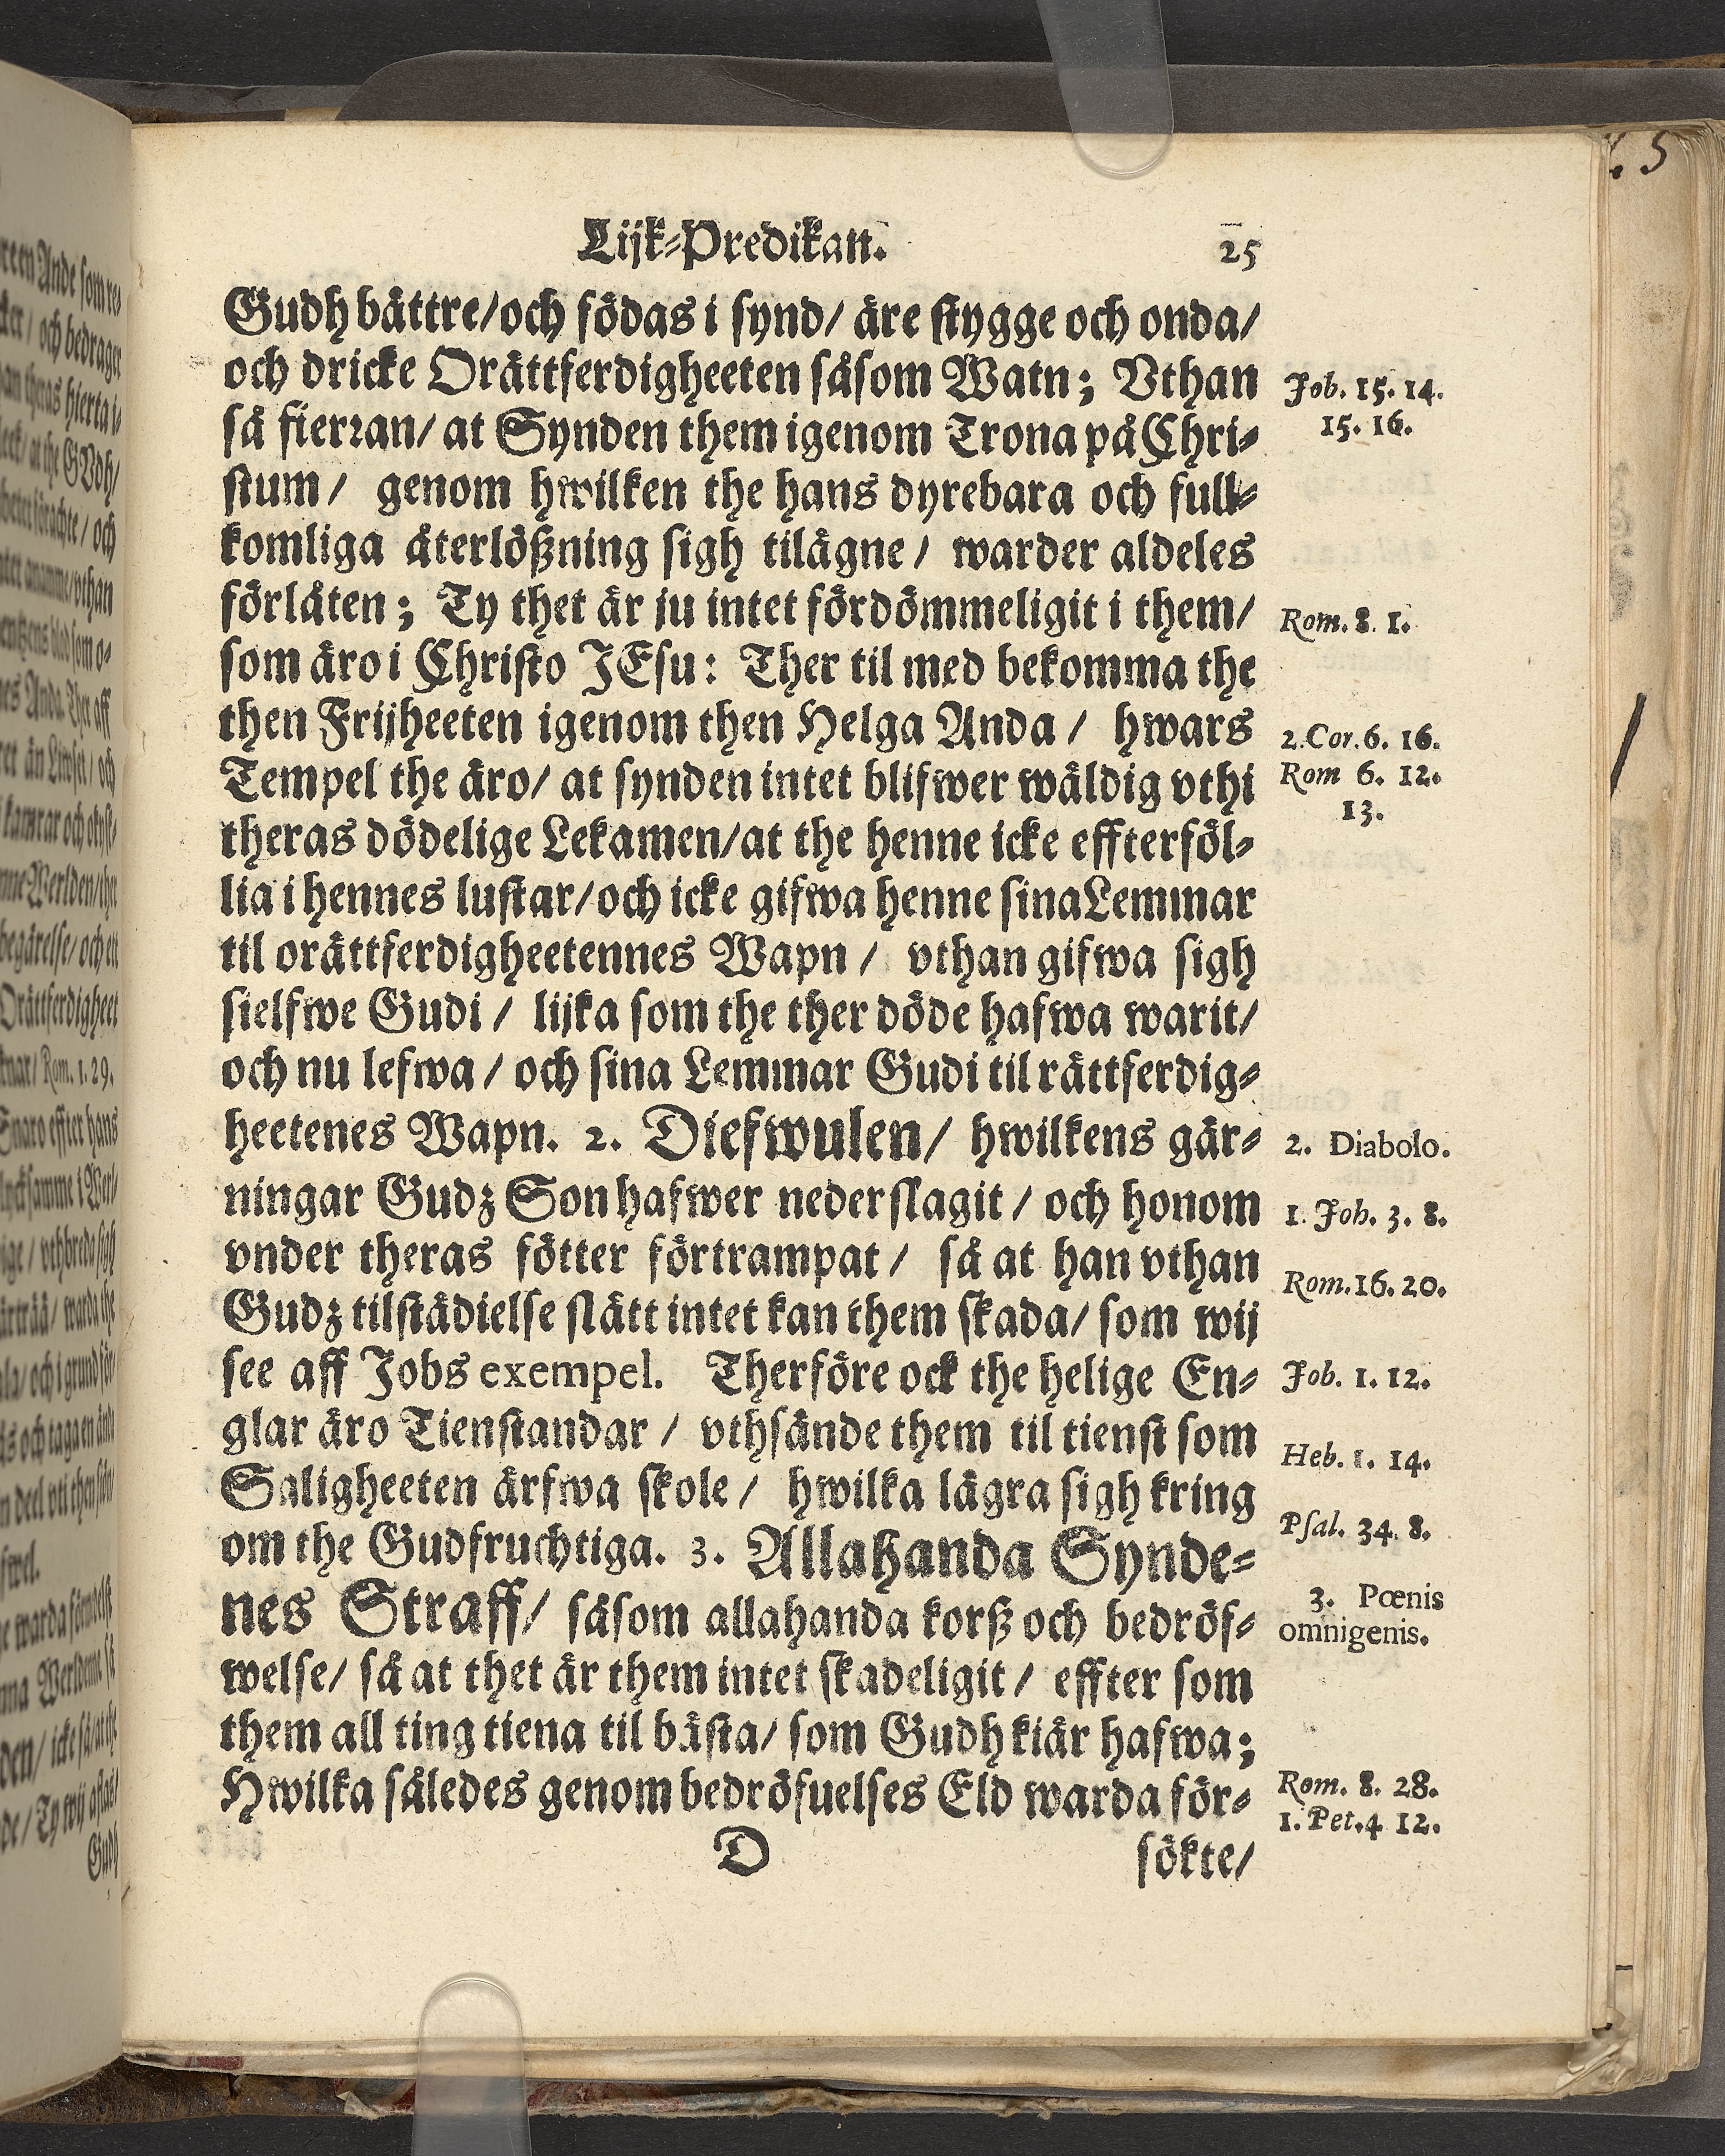 Lijk-Predikan. 25
Gudh bättre/och födas i synd/ äre stygge och onda/
och dricke Orättferdigheeten såsom Watn; Vthan
så fierran/ at Synden them igenom Trona på Chri-
stum/ genom hwilken the hans dyrebara och full-
komliga återlößning sigh tilägne/ warder aldeles
förlåten; Ty thet är ju intet fördömmeligit i them/
som äro i Christo JEsu: Ther til med bekomma the
then Frijheeten igenom then Helga Anda/ hwars
Tempel the äro/ at synden intet blifwer wäldig vthi
theras dödelige Lekamen/at the henne icke effterföl-
lia i hennes lustar/och icke gifwa henne sina Lemmar
til orättferdigheetennes Wapn/ vthan gifwa sigh
sielfwe Gudi/ lijka som the ther döde hafwa warit/
och nu lefwa/ och sina Lemmar Gudi til rättferdig-
heetenes Wapn. 2. Diefwulen/ hwilkens gär-
ningar Gudz Son hafwer nederslagit/ och honom
vnder theras fötter förtrampat/ så at han vthan
Gudz tilstädielse slätt intet kan them skada/ som wij
see aff Jobs exempel. Therföre ock the helige En-
glar äro Tienstandar/ vthsände them til tienst som
Saligheeten ärfwa skole/ hwilka lägra sigh kring
om the Gudfruchtiga. 3. Allahanda Synde-
nes Straff/ såsom allahanda korß och bedröf-
welse/ så at thet är them intet skadeligit/ effter som
them all ting tiena til bästa/ som Gudh kiär hafwa;
Hwilka således genom bedröfuelses Eld warda för-
D sökte/
Job. 15. 14.
15. 16.
Rom. 8. 1.
2. Cor. 6. 16.
Rom 6. 12.
13.
2. Diabolo.
1. Joh. 3. 8.
Rom. 16. 20.
Job. 1. 12.
Heb. 1. 14.
Psal. 34. 8.
3. Pœnis
omnigenis.
Rom. 8. 28.
1. Pet. 4 12.